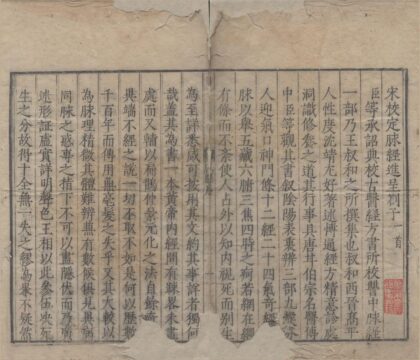 宋校定脉經進呈劄子一首
臣等承詔典校古醫經方書所校讐中脉經
一部乃王叔和之所撰集也叔和西晉高平
人性度沉靖尤好著述博通經方精意診處
洞識修養之道其行事具唐甘伯宗名醫傳
中臣等觀其書叙陰陽表裏辨三部九候分
人迎氣口神門條十二經二十四氣奇經八
脉以舉五臟六腑三焦四時之痾若網在綱
有條而不紊使人占外以知內視死而別生
為至詳悉咸可按用其文約其事詳者獨何
哉蓋其為書一本黃帝內經間有踈略未盡
處而又輔以扁鵲仲景元化之法自餘奇怪
異端不經之說一切不取不如是何以歷數
千百年而傳用無毫髮之失乎又其大較以
為脉理精微其體難辨兼有數候俱見異病
同脉之惑專之指下不可以盡隱伏而乃廣
述形證虛實詳明聲色王相以此參伍決死
生之分故得十全無一失之謬為果不疑矣